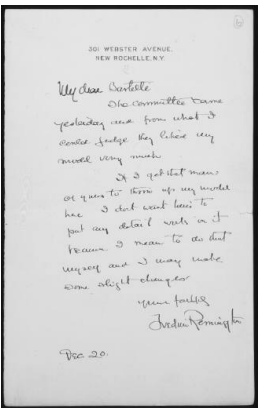 301 WEBSTER AVENUE.
NEW ROCHELLE, N.Y.
My dear Bartlett
The committee came
yesterday and from what I
could judge they liked my
model very much.
If I get that man
of yours to throw up my model
here I dont want him to
put any detail work in it
because I mean to do that
myself and I may make
some slight changes
Yours faithfully
Frederic Remington
Dec 20.